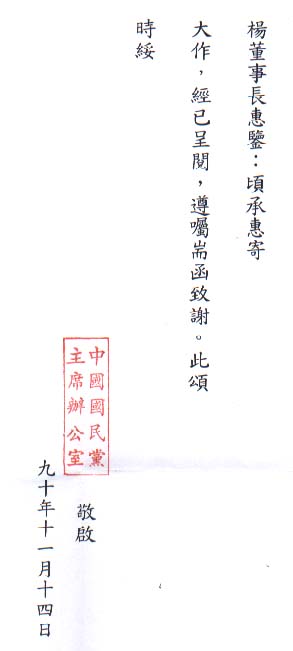 楊董事長惠鑒：頃承惠寄
大作，經已呈閱，遵囑耑函致謝。此頌
時綏
中國國民黨
主席辦公室
敬啟
九十年十一月十四日